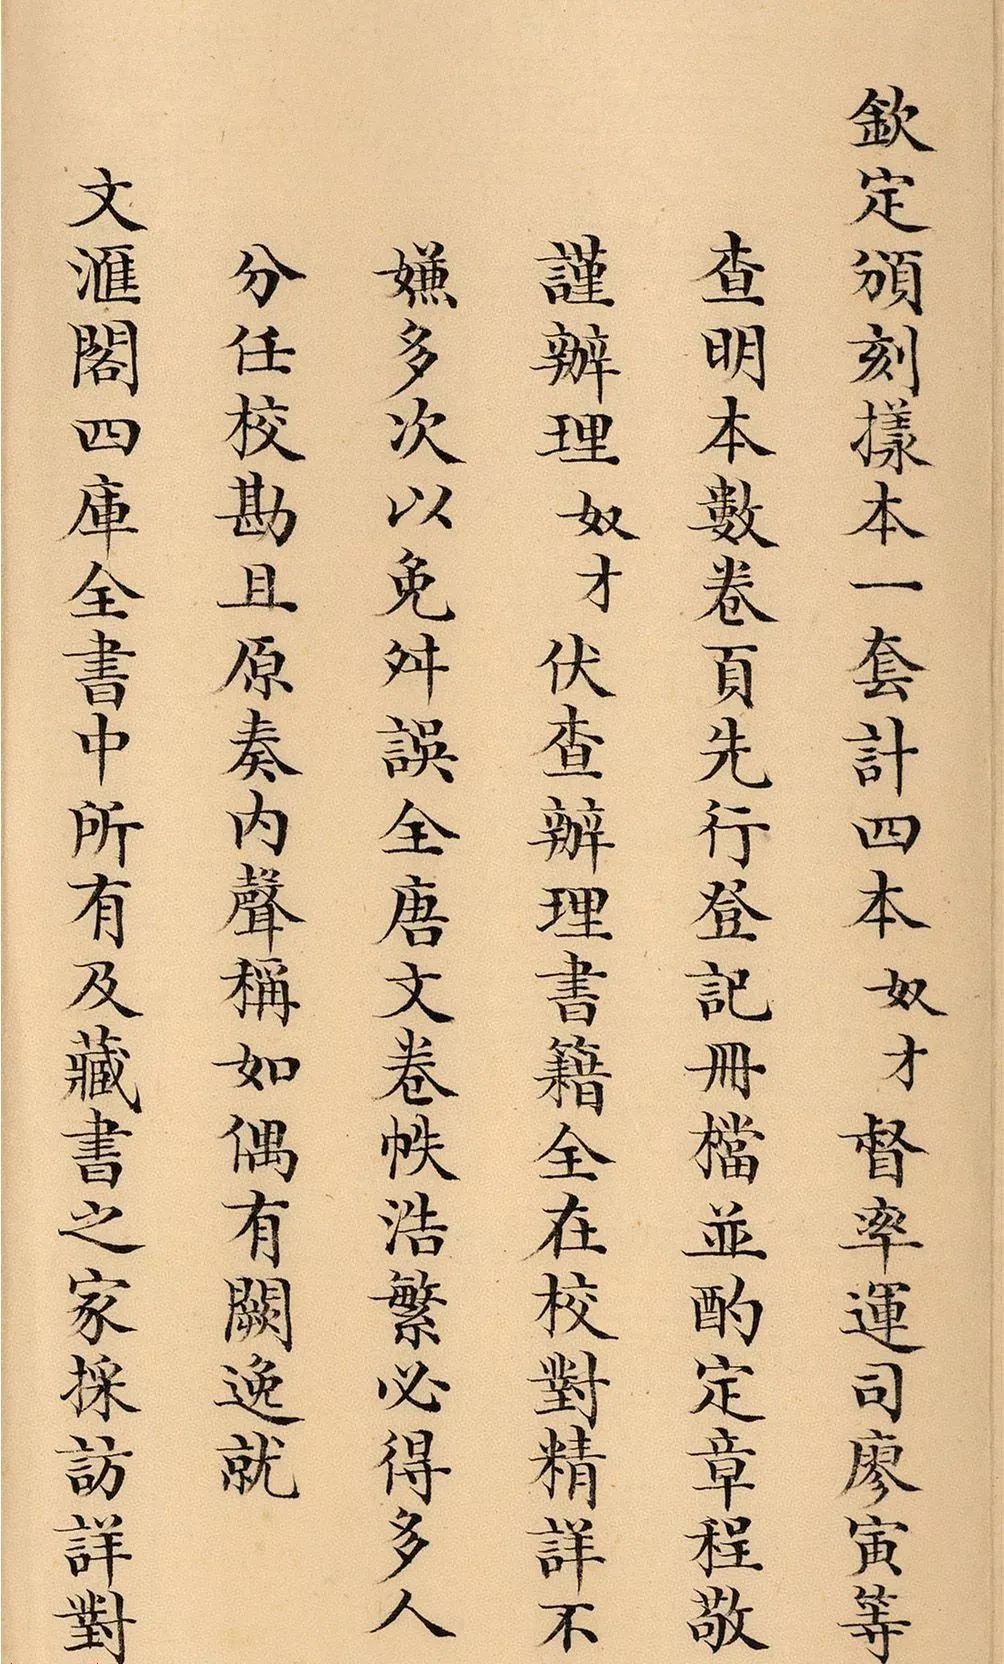 欽定頒刻樣本一套計四本奴才督率運司廖寅等
查明本數卷頁先行登記冊檔並酌定章程敬
謹辦理奴才伏查辦理書籍全在校對精詳不
嫌多次以免舛誤全唐文卷帙浩繁必得多人
分任校勘且原奏內聲稱如偶有闕逸就
文滙閣四庫全書中所有及藏書之家採訪詳對